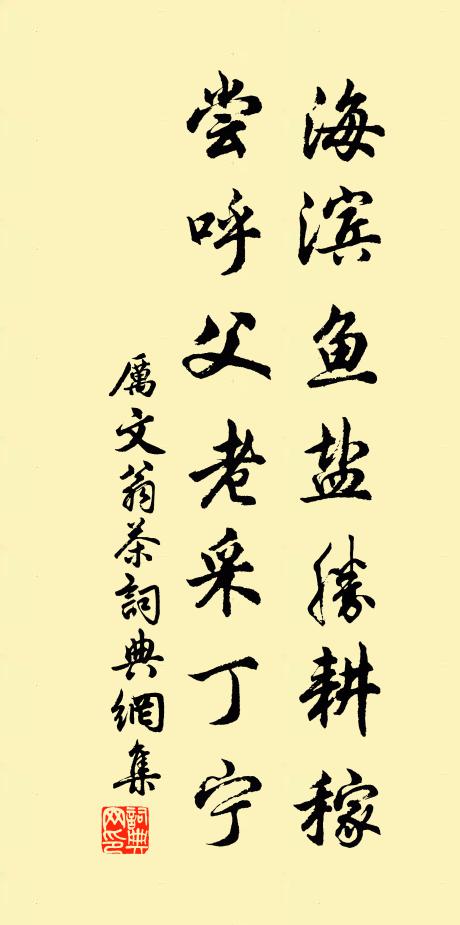 海滨鱼盐勝耕稼
尝呼父老采丁宁
厲文翁茶詞典網集
詞典网印